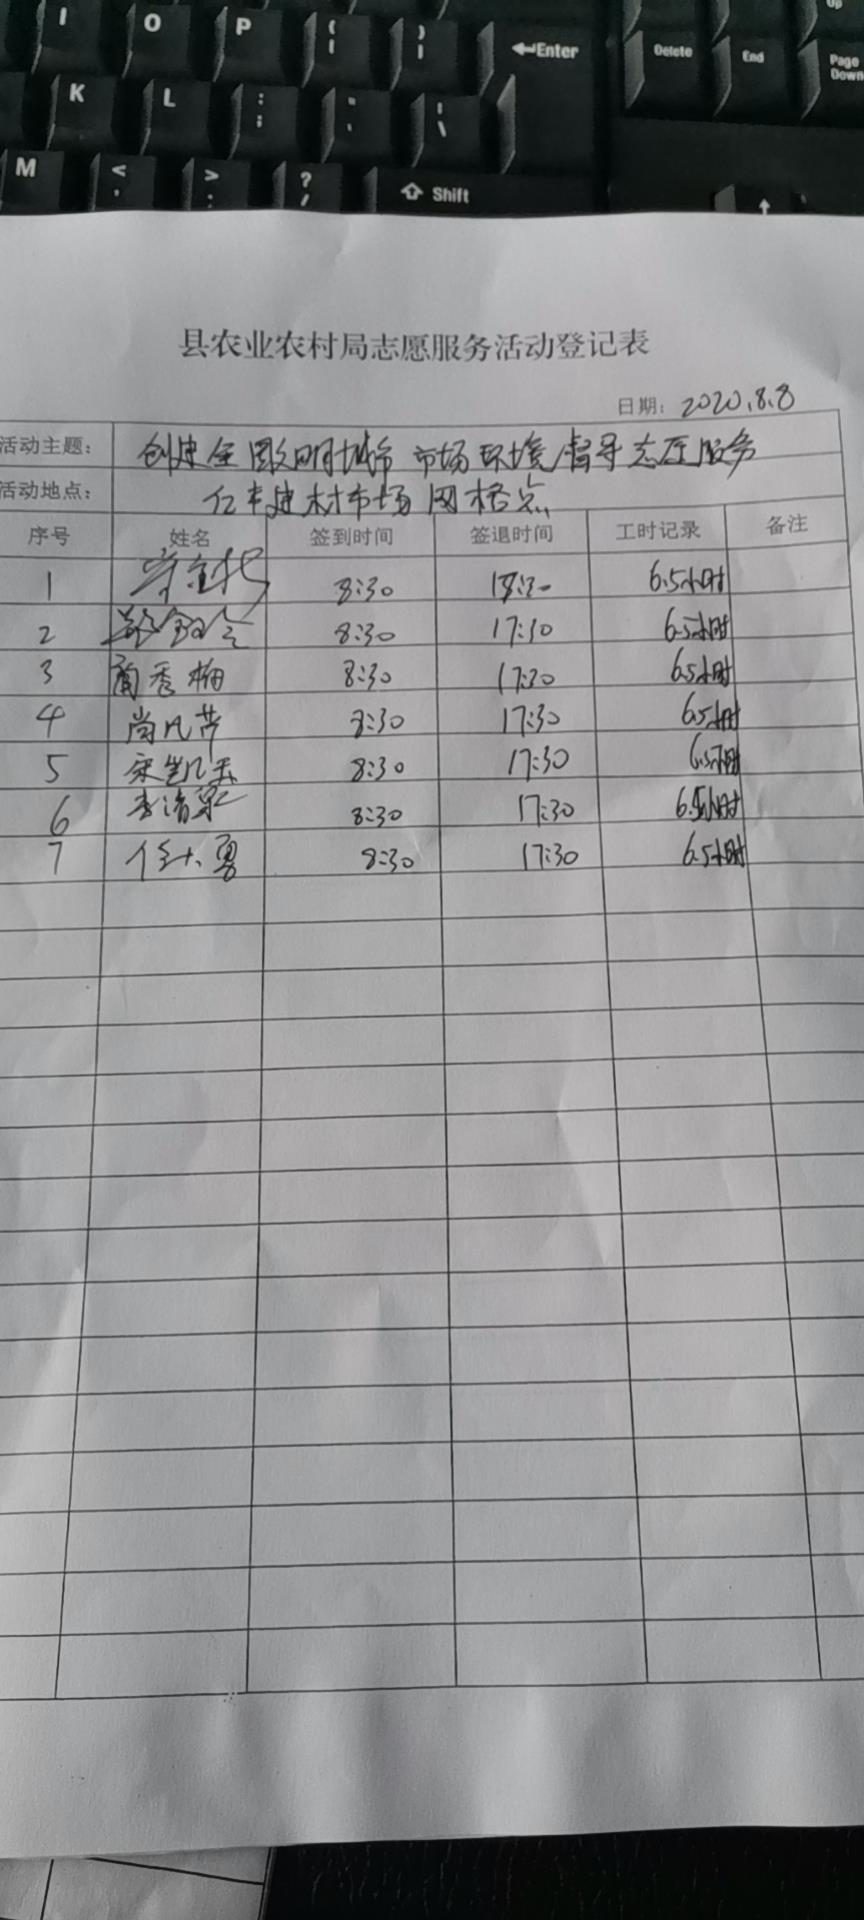 I O P { [ } ] Enter Delete End Page Down Up
K L : ; " ' | \
M < , > . ? / Shift
县农业农村局志愿服务活动登记表
日期: 2020.8.8
活动主题: 创建全国文明城市 市场环境督导志愿服务
活动地点: 仁丰建材市场网格点
序号 姓名 签到时间 签退时间 工时记录 备注
1 8:30 6.5小时
2 8:30 17:30 6.5小时
3 秀梅 8:30 17:30 6.5小时
4 尚凡芹 8:30 17:30 6.5小时
5 宋凯 8:30 17:30 6.5小时
6 李清 8:30 17:30 6.5小时
7 任大勇 8:30 17:30 6.5小时